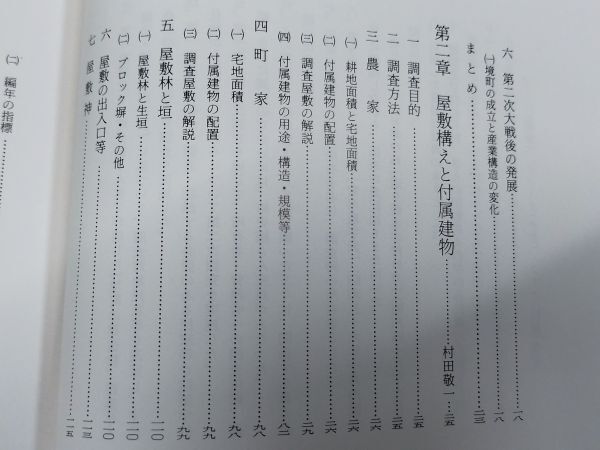 六 第二次大戦後の発展……一八
㈠境町の成立と産業構造の変化……一八
まとめ……二三
第二章 屋敷構えと付属建物……村田敬一…二五
一 調査目的……二五
二 調査方法……二五
三 農家……二六
㈠ 耕地面積と宅地面積……二六
㈡ 付属建物の配置……二六
㈢ 調査屋敷の解説……二九
㈣ 付属建物の用途・構造・規模等……八二
四 町家……九八
㈠ 宅地面積……九八
㈡ 付属建物の配置……九九
㈢ 調査屋敷の解説……九九
五 屋敷林と垣……一一〇
㈠ 屋敷林と生垣……一一〇
㈡ ブロック塀・その他……一一〇
六 屋敷の出入口等……一一〇
七 屋敷神……一一三
一一五
㈡ 編年の指標……